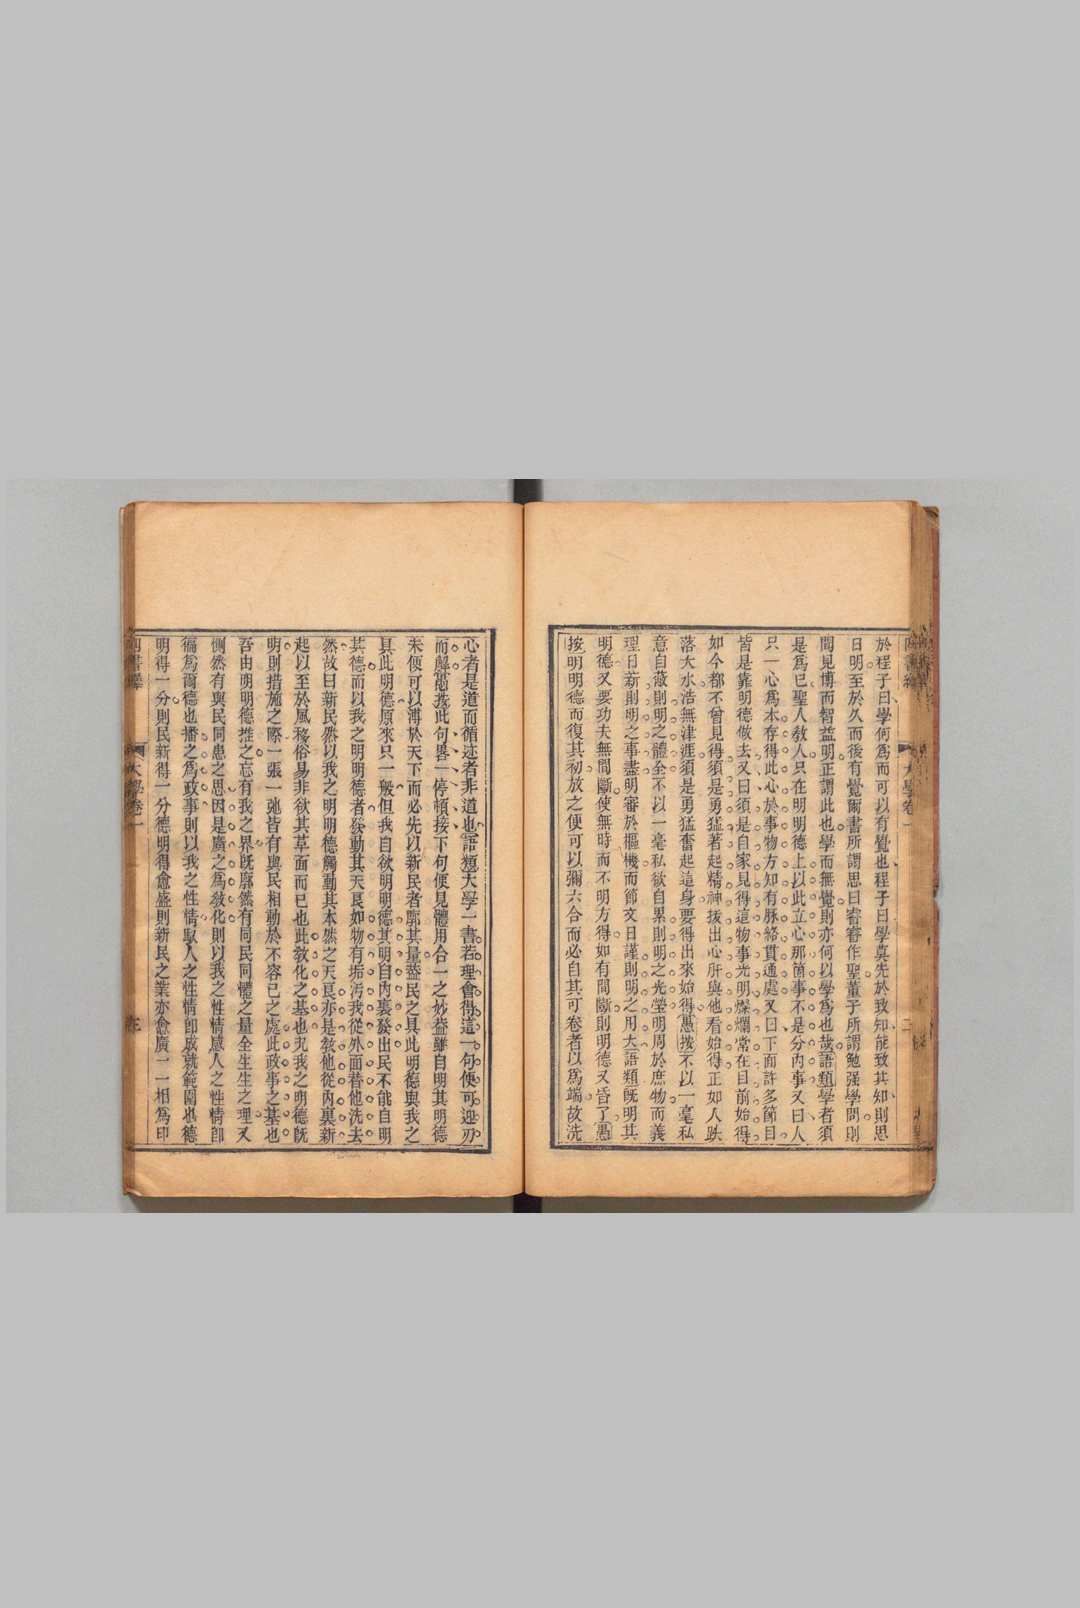 於程子曰學何爲而可以有覺也程子曰學莫先於致知能致其知則思
日明至於久而後有覺爾書所謂思曰睿睿作聖董子所謂勉强學問則
聞見博而智益明正謂此也學而無覺則亦何以學爲也哉語類學者須
是爲已聖人敎人只在明明德上以此立心那箇事不是分內事又曰人
只一心爲本存得此心於事物方知有脉絡貫通處又曰下面許多節目
皆是靠明德做去又曰須是自家見得這物事光明燦爛常在目前始得
如今都不曾見得須是勇猛著起精神拔出心肝與他看始得正如人跌
落大水浩無津涯須是勇猛奮起這身要得出來始得愚按不以一毫私
意自蔽則明之體全不以一毫私欲自累則明之光瑩明周於庶物而義
理日新則明之事盡明審於樞機而節文日謹則明之用大語類旣明其
明德又要功夫無間斷使無時而不明方得如有間斷則明德又昏了愚
按明明德而復其初放之便可以彌六合而必自其可卷者以爲端故洗
心者是道而循迹者非道也語類大學一書若理會得這一句便可迎刃
而解愚按此句畧一停頓接下句便見體用合一之妙葢雖自明其明德
未便可以溥於天下而必先以新民者廓其量葢民之具此明德與我之
具此明德原來只一般但我自欲明明德其明自內裏發出民不能自明
其德而以我之明明德者發動其天良如物有垢汚我從外面替他洗去
然故曰新民然以我之明明德觸動其本然之天良亦是敎他從內裏新
起以至於風移俗易非欲其革面而已也此敎化之基也況我之明德旣
明則措施之際一張一弛皆有與民相動於不容已之處此政事之基也
吾由明明德推之忘有我之界旣廓然有同民同體之量全生生之理又
惻然有與民同患之思因是廣之爲敎化則以我之性情感人之性情卽
徧爲爾德也播之爲政事則以我之性情馭人之性情卽成就範圍也德
明得一分則民新得一分德明得愈盛則新民之業亦愈廣一一相爲印
大學卷一